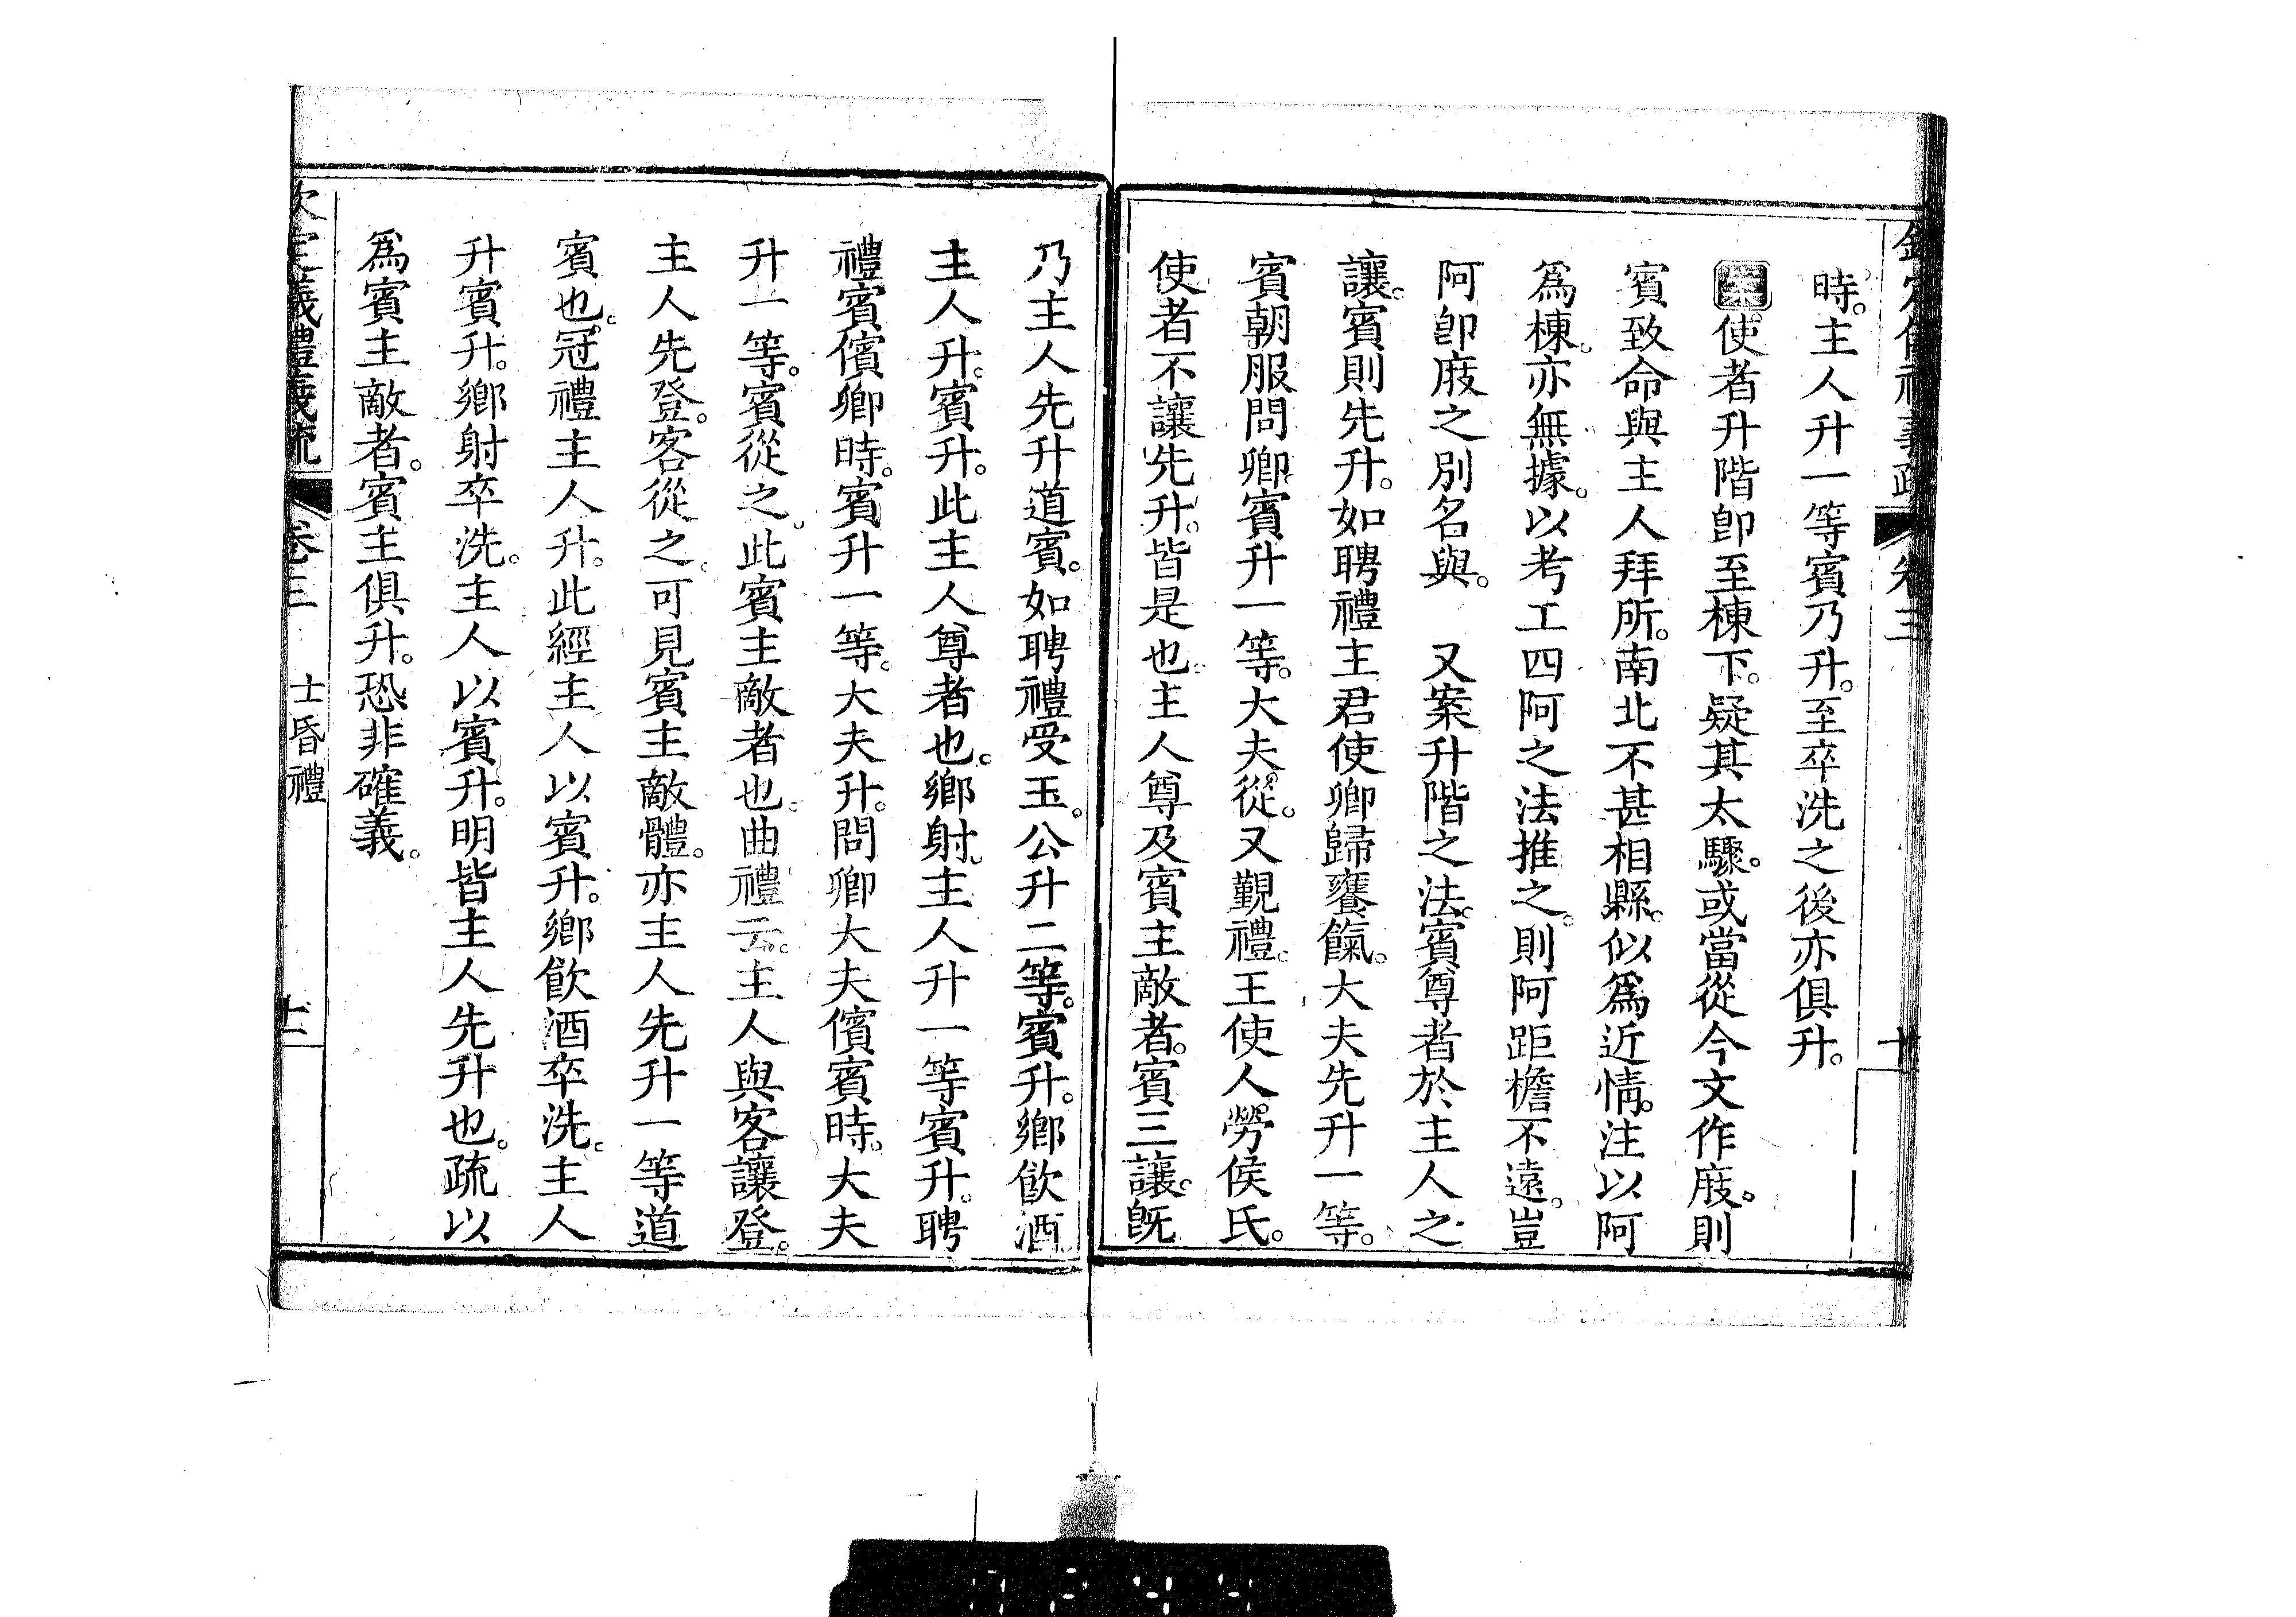 欽定儀禮義疏 卷三 十
時。主人升一等賓乃升。至卒洗之後亦俱升。
案使者升階卽至棟下。疑其太驟。或當從今文作庪。則
賓致命與主人拜所。南北不甚相縣。似爲近情。注以阿
爲棟。亦無據。以考工四阿之法推之。則阿距檐不遠。豈
阿卽庪之別名與。 又案升階之法。賓尊者於主人之
讓。賓則先升。如聘禮主君使卿歸饔餼。大夫先升一等。
賓朝服問卿。賓升一等。大夫從。又覲禮。王使人勞侯氏。
使者不讓先升。皆是也。主人尊及賓主敵者。賓三讓。旣
乃主人先升道賓。如聘禮受玉。公升二等。賓升。鄉飮酒
主人升。賓升。此主人尊者也。鄉射。主人升一等賓升。聘
禮賓儐卿時。賓升一等。大夫升。問卿大夫儐賓時。大夫
升一等。賓從之。此賓主敵者也。曲禮云。主人與客讓登。
主人先登。客從之。可見賓主敵體。亦主人先升一等道
賓也。冠禮主人升。此經主人以賓升。鄉飮酒卒洗。主人
升賓升。鄉射卒洗。主人以賓升。明皆主人先升也。疏以
爲賓主敵者。賓主俱升。恐非確義。
欽定義禮義疏 卷三 士昏禮 十一